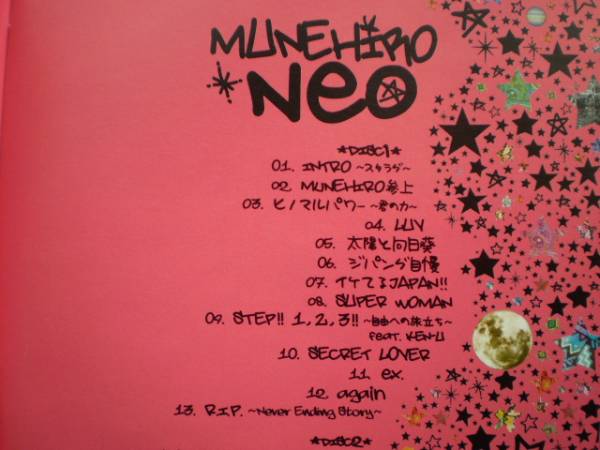 MUNEHIRO
NEO
★DISC1★
01. INTRO ～スタラヂ～
02. MUNEHIRO参上
03. ヒノマルパワー ～君の力～
04. LUV
05. 太陽と向日葵
06. ジパング自慢
07. イケてるJAPAN!!
08. SUPER WOMAN
09. STEP!! 1, 2, 3!! ～自由への旅立ち～
feat. KEN-U
10. SECRET LOVER
11. ex.
12. again
13. R.I.P. ～Never Ending Story～
★DISC2★